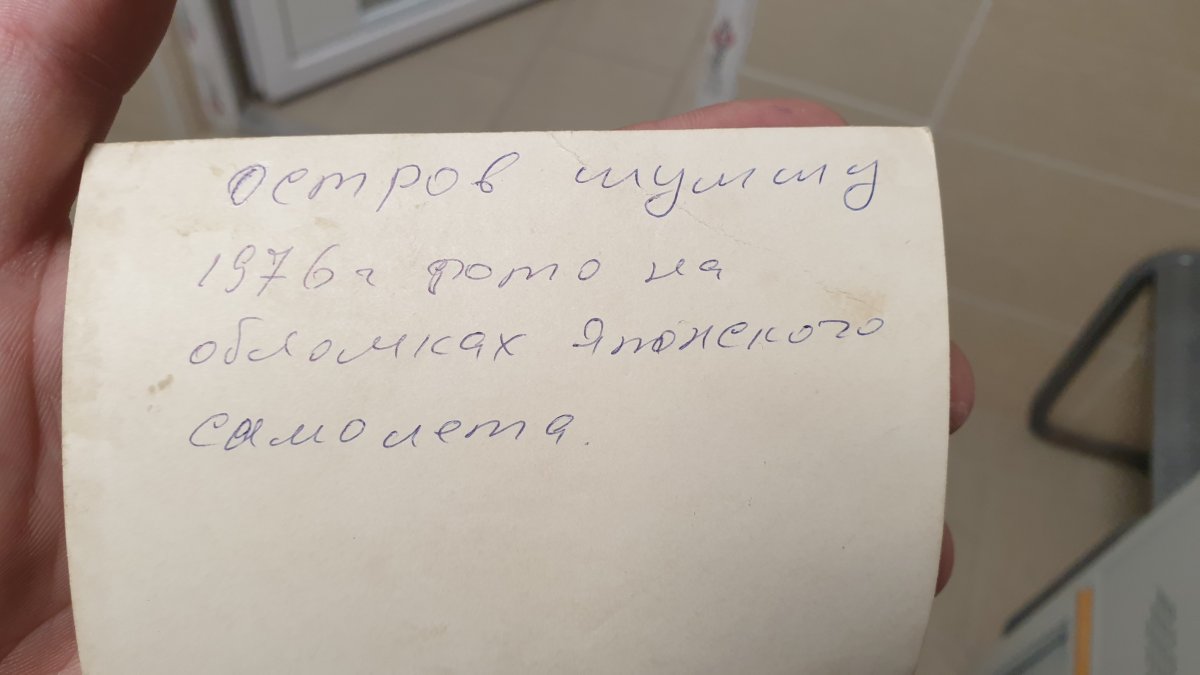 остров шумшу
1976г фото на
обломках Японского
самолета.